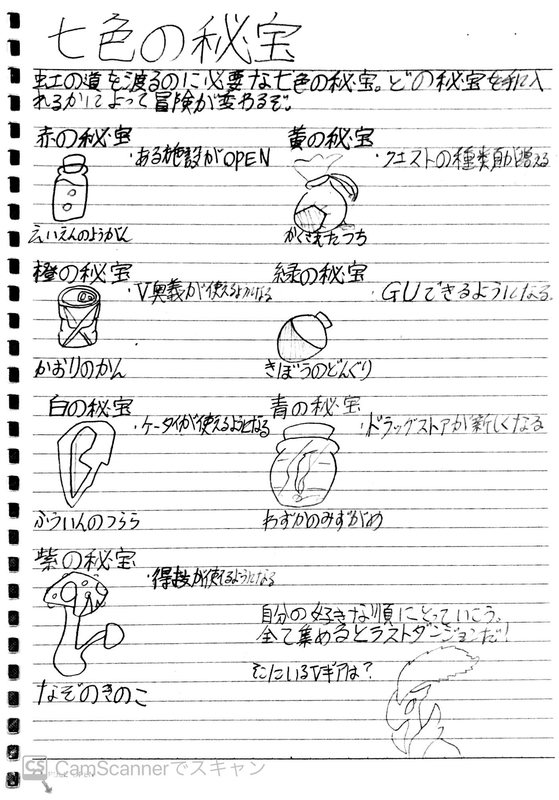 七色の秘宝
虹の道を渡るのに必要な七色の秘宝。どの秘宝を手に入
れるかによって冒険が変わるぞ。
赤の秘宝
・ある施設がOPEN
えいえんのようがん
黄の秘宝
・クエストの種類が増える
かくさえたつち
橙の秘宝
・V奥義が使えるようになる
かおりのかん
緑の秘宝
・GUできるようになる
きぼうのどんぐり
白の秘宝
・ケータイが使えるようになる
ふういんのつらら
青の秘宝
・ドラッグストアが新しくなる
わずかのみずがめ
紫の秘宝
・得技が使えるようになる
なぞのきのこ
自分の好きな順にとっていこう。
全て集めるとラストダンジョンだ!
そこにいるVギアは?
CS CamScannerでスキャン